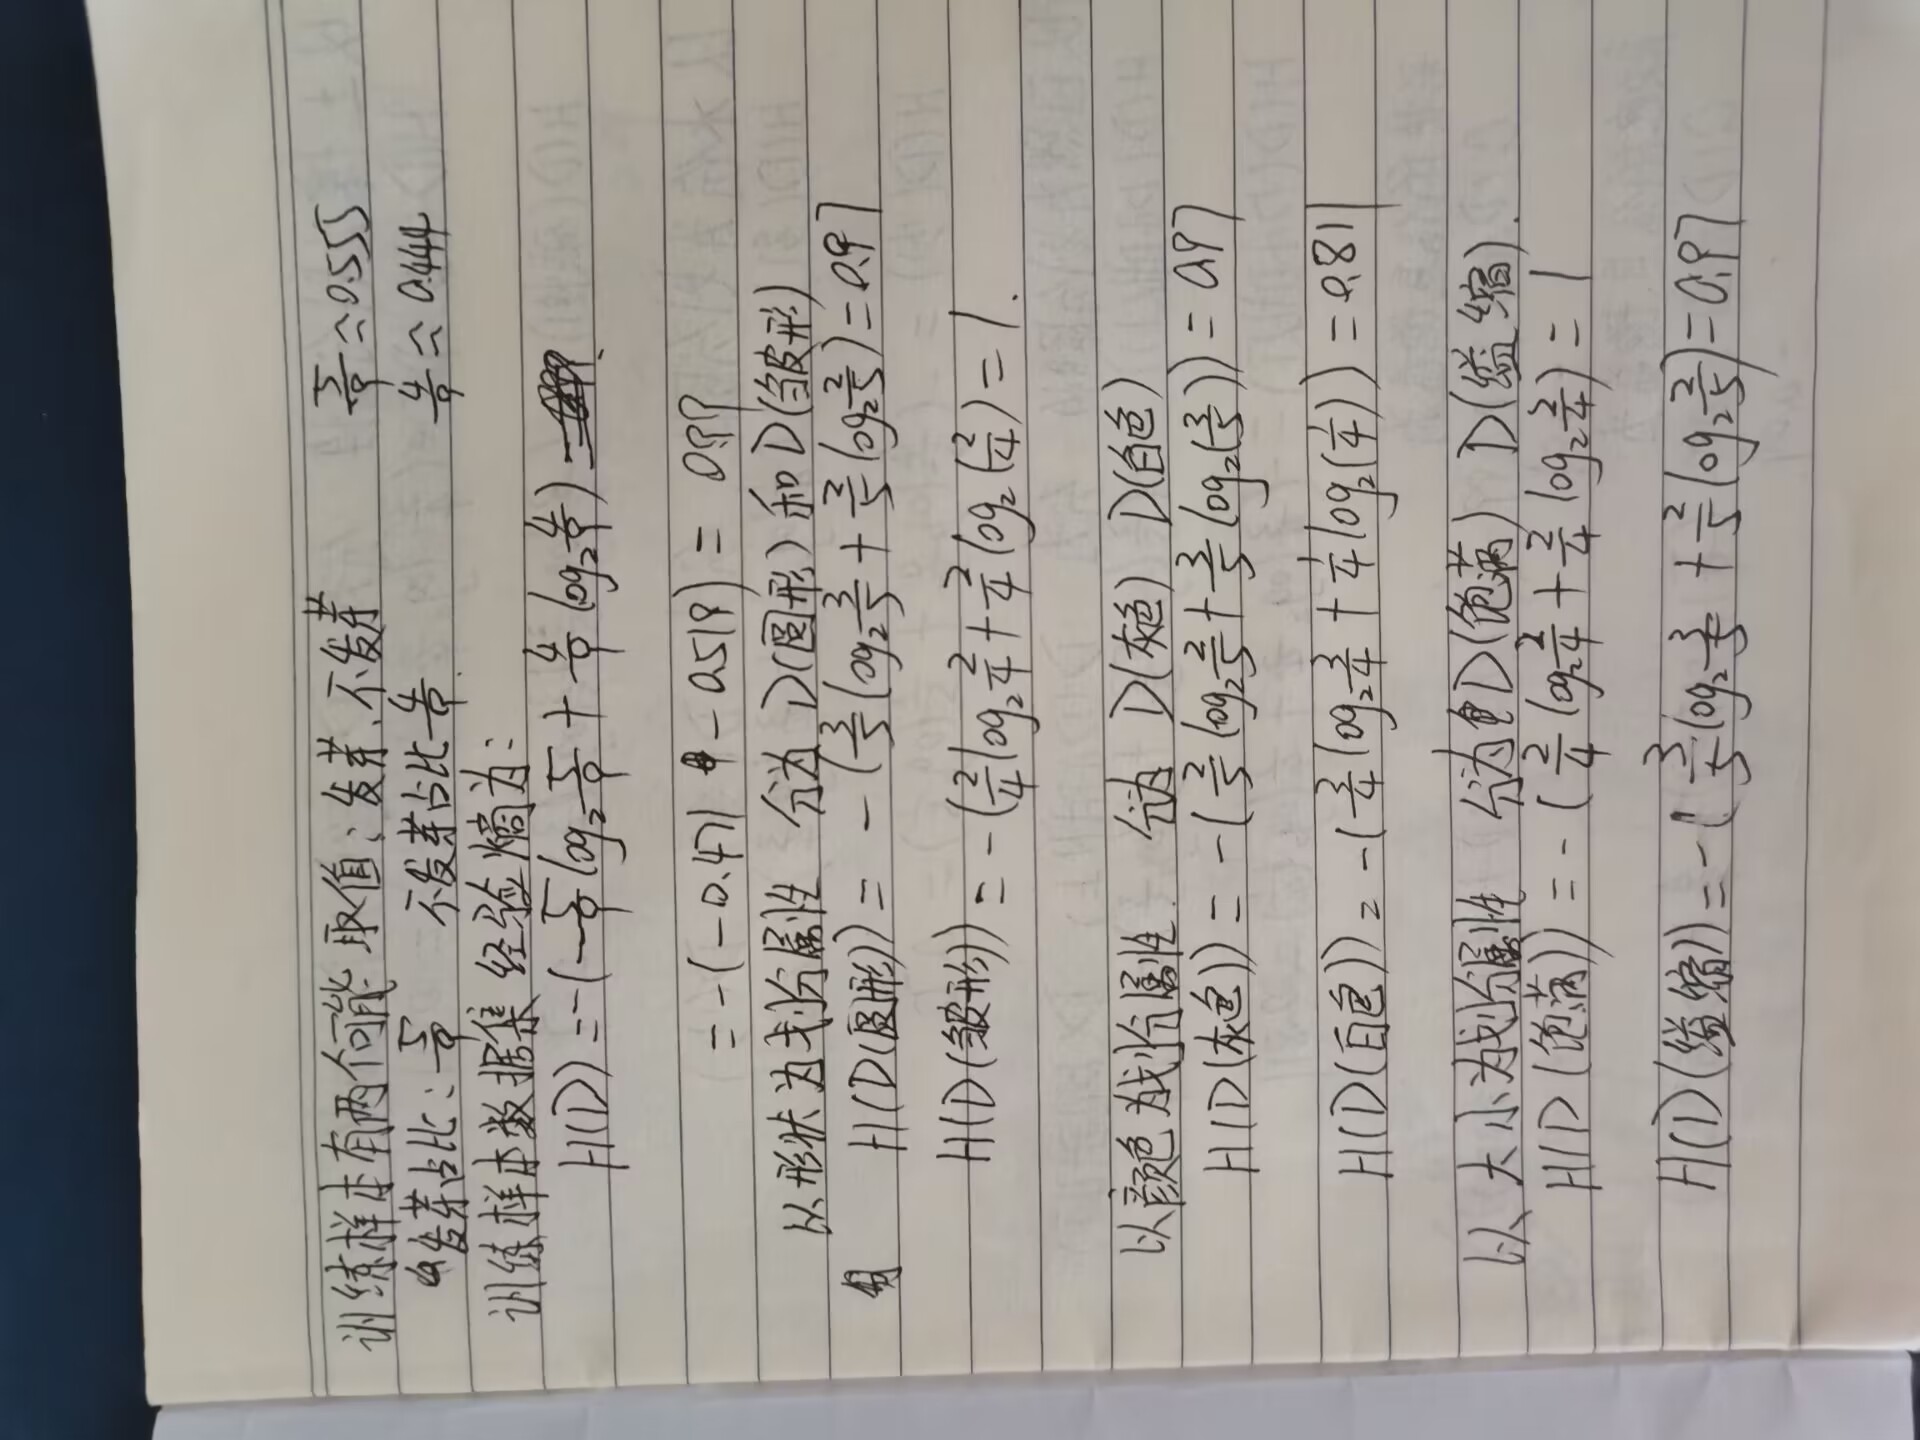 训练样本有两个可能取值：发芽、不发芽 5/9≈0.555
发芽占比：5/9 不发芽占比4/9 4/9≈0.444
训练样本数据集 经验熵为：
H(D)=-(5/9log₂5/9+4/9log₂4/9)=
=-(-0.471-0.519)=0.99
以形状为划分属性 分为D(圆形)和D(皱形)
H(D(圆形))=-(3/5log₂3/5+2/5log₂2/5)=0.97
H(D(皱形))=-(2/4log₂2/4+2/4log₂(2/4))=1.
以颜色为划分属性. 分为 D(灰色) D(白色)
H(D(灰色))=-(2/5log₂2/5+3/5log₂(3/5))=0.97
H(D(白色))=-(3/4log₂3/4+1/4log₂(1/4))=0.811
以大小为划分属性 分为D(饱满) D(缢缩).
H(D(饱满))=-(2/4log₂2/4+2/4log₂2/4)=1
H(D(缢缩))=-(3/5log₂3/5+2/5log₂2/5)=0.97